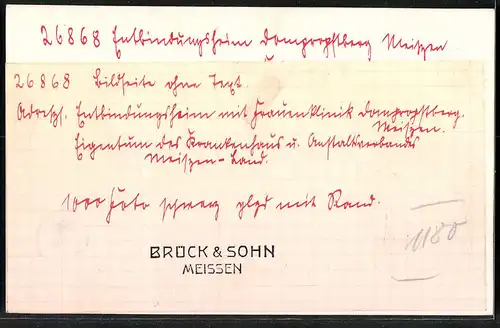 26868 Entbindungsheim Dompropstberg Meißen
26868 Bildseite ohne Text.
Adreßs. Entbindungsheim mit Frauenklinik Dompropstberg.
Meißen.
Eigentum des Krankenhaus u. Anstaltsverbandes
Meißen-Land.
1000 Foto schwarz glzd mit Rand.
1180
BRÜCK & SOHN
MEISSEN